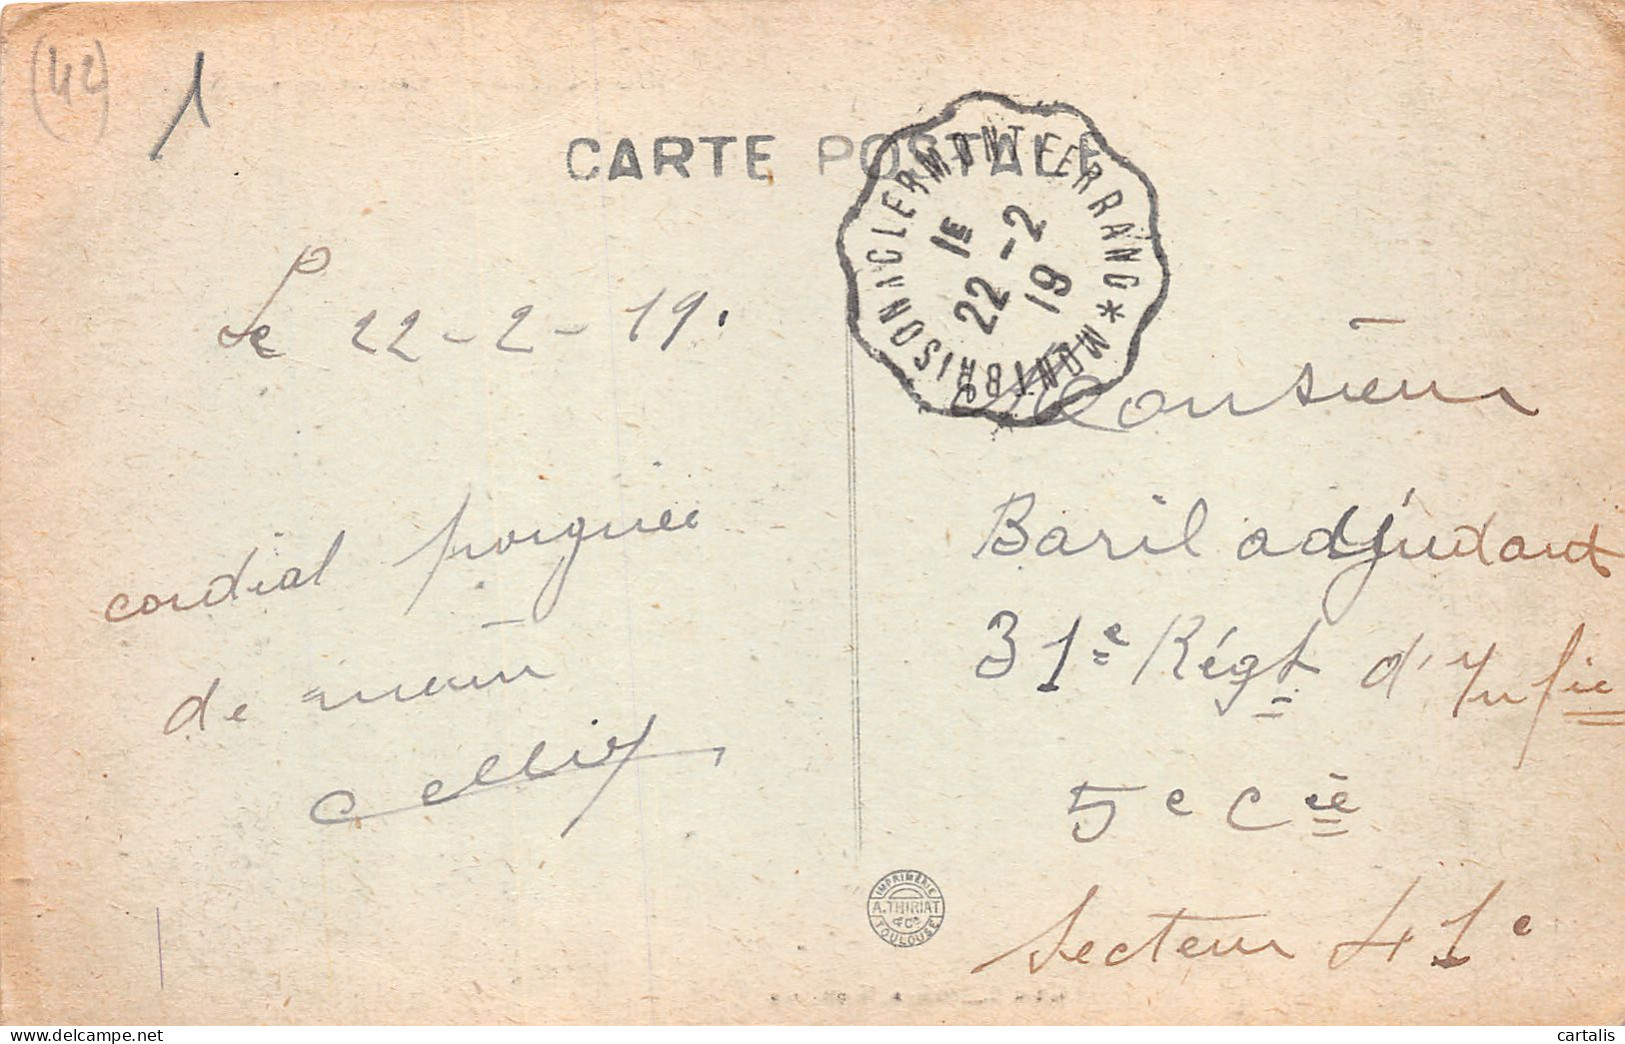 (42)
1
CARTE POSTALE
MONTBRISON A CLERMONT FERRAND *
1E
22 -2
19
Le 22-2-19.
cordial poignée
de main
Monsieur
Baril adjudant
31e Régt d'Infie
5e Cie
Secteur 41e
IMPRIMERIE
A. THIRIAT
& Cie
TOULOUSE
cartalis